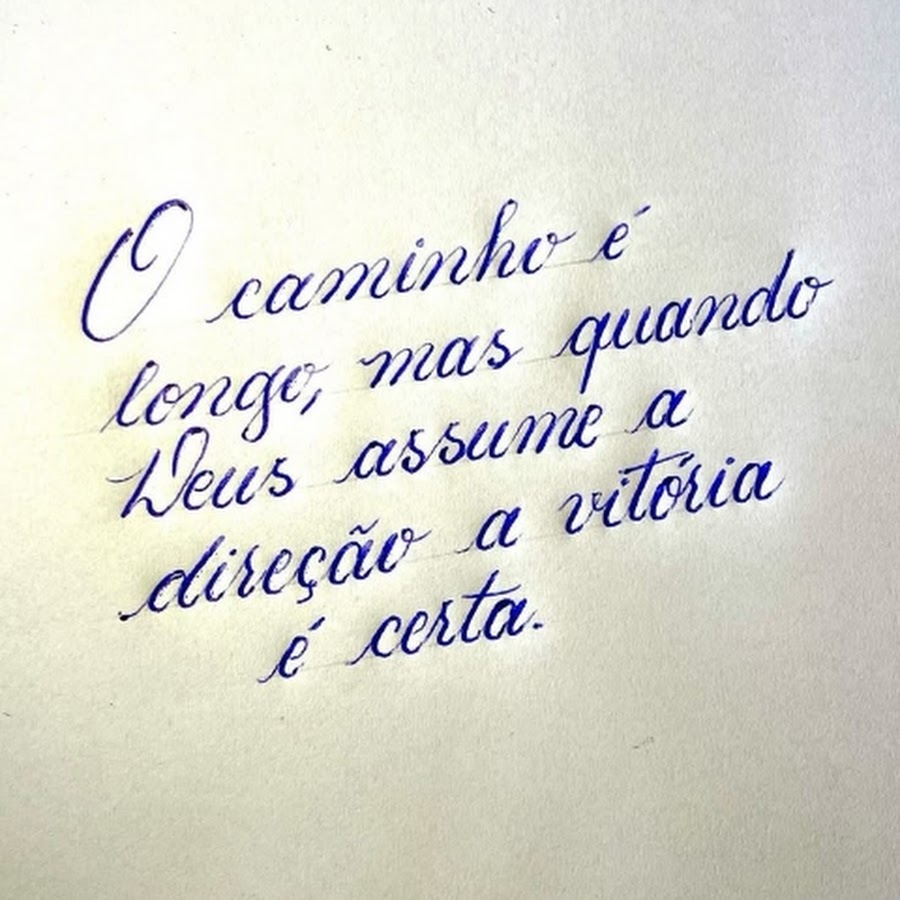 O caminho é
longo, mas quando
Deus assume a
direção a vitória
é certa.